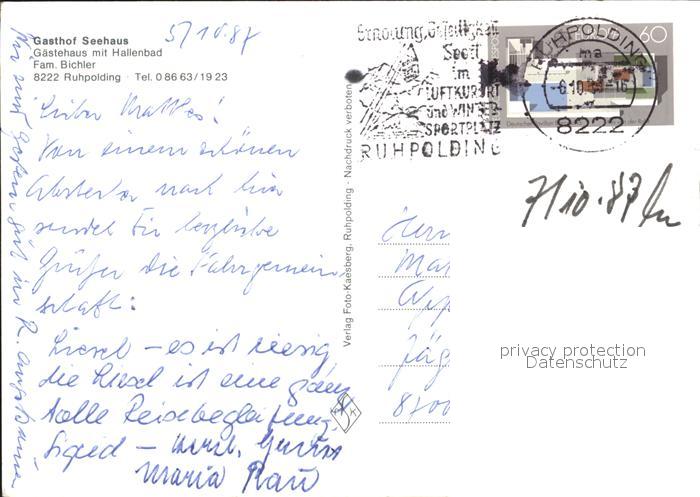 Gasthof Seehaus
Gästehaus mit Hallenbad
Fam. Bichler
8222 Ruhpolding · Tel. 0 86 63/19 23
5/10.87
Lieber Matthes!
Von einem schönen
Abstecher nach hier
sendet Dir herzliche
Grüße die Fahrgemein
schaft:
Liesel – es ist riesig
die Liesel ist eine ganz
tolle Reisebegleitung,
Sigrid –
Maria Rau
Wir sind gestern gut in R. angekommen
Verlag Foto-Kaesberg, Ruhpolding · Nachdruck verboten
Erholung, Geselligkeit
Sport
im
LUFTKURORT
und WINTER-
SPORTPLATZ
RUHPOLDING
60
RUHPOLDING
ma
8222
7/10.87
Herrn
Ma
Jäg
8700
privacy protection
Datenschutz